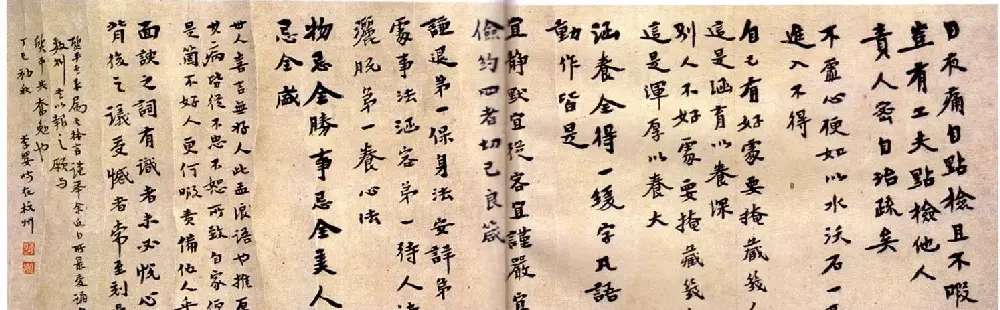 日夜痛自點檢且不暇
豈有工夫點檢他人
責人密自治疏矣
不虛心便如以水沃石一
進入不得
自己有好處要掩藏幾
這是涵育以養深
別人不好處要掩藏幾
這是渾厚以養大
涵養全得一緩字凡語
動作皆是
宜靜默宜從容宜謹嚴宜
儉約四者切己良箴
謙退第一保身法安詳第
處事法涵容第一待人法
灑脫第一養心法
物忌全勝事忌全美人
忌全盛
世人喜言無好人此孟浪語也推原
其病皆從不忠不恕所致自家便
是箇不好人更何暇責備他人乎
面諛之詞有識者未必悅心
背後之議受憾者常至刻
平居士屬書格言謹舉余近日所最愛誦
數則書以報之願與
平共奮勉也
丁巳初秋 李嬰時在杭州